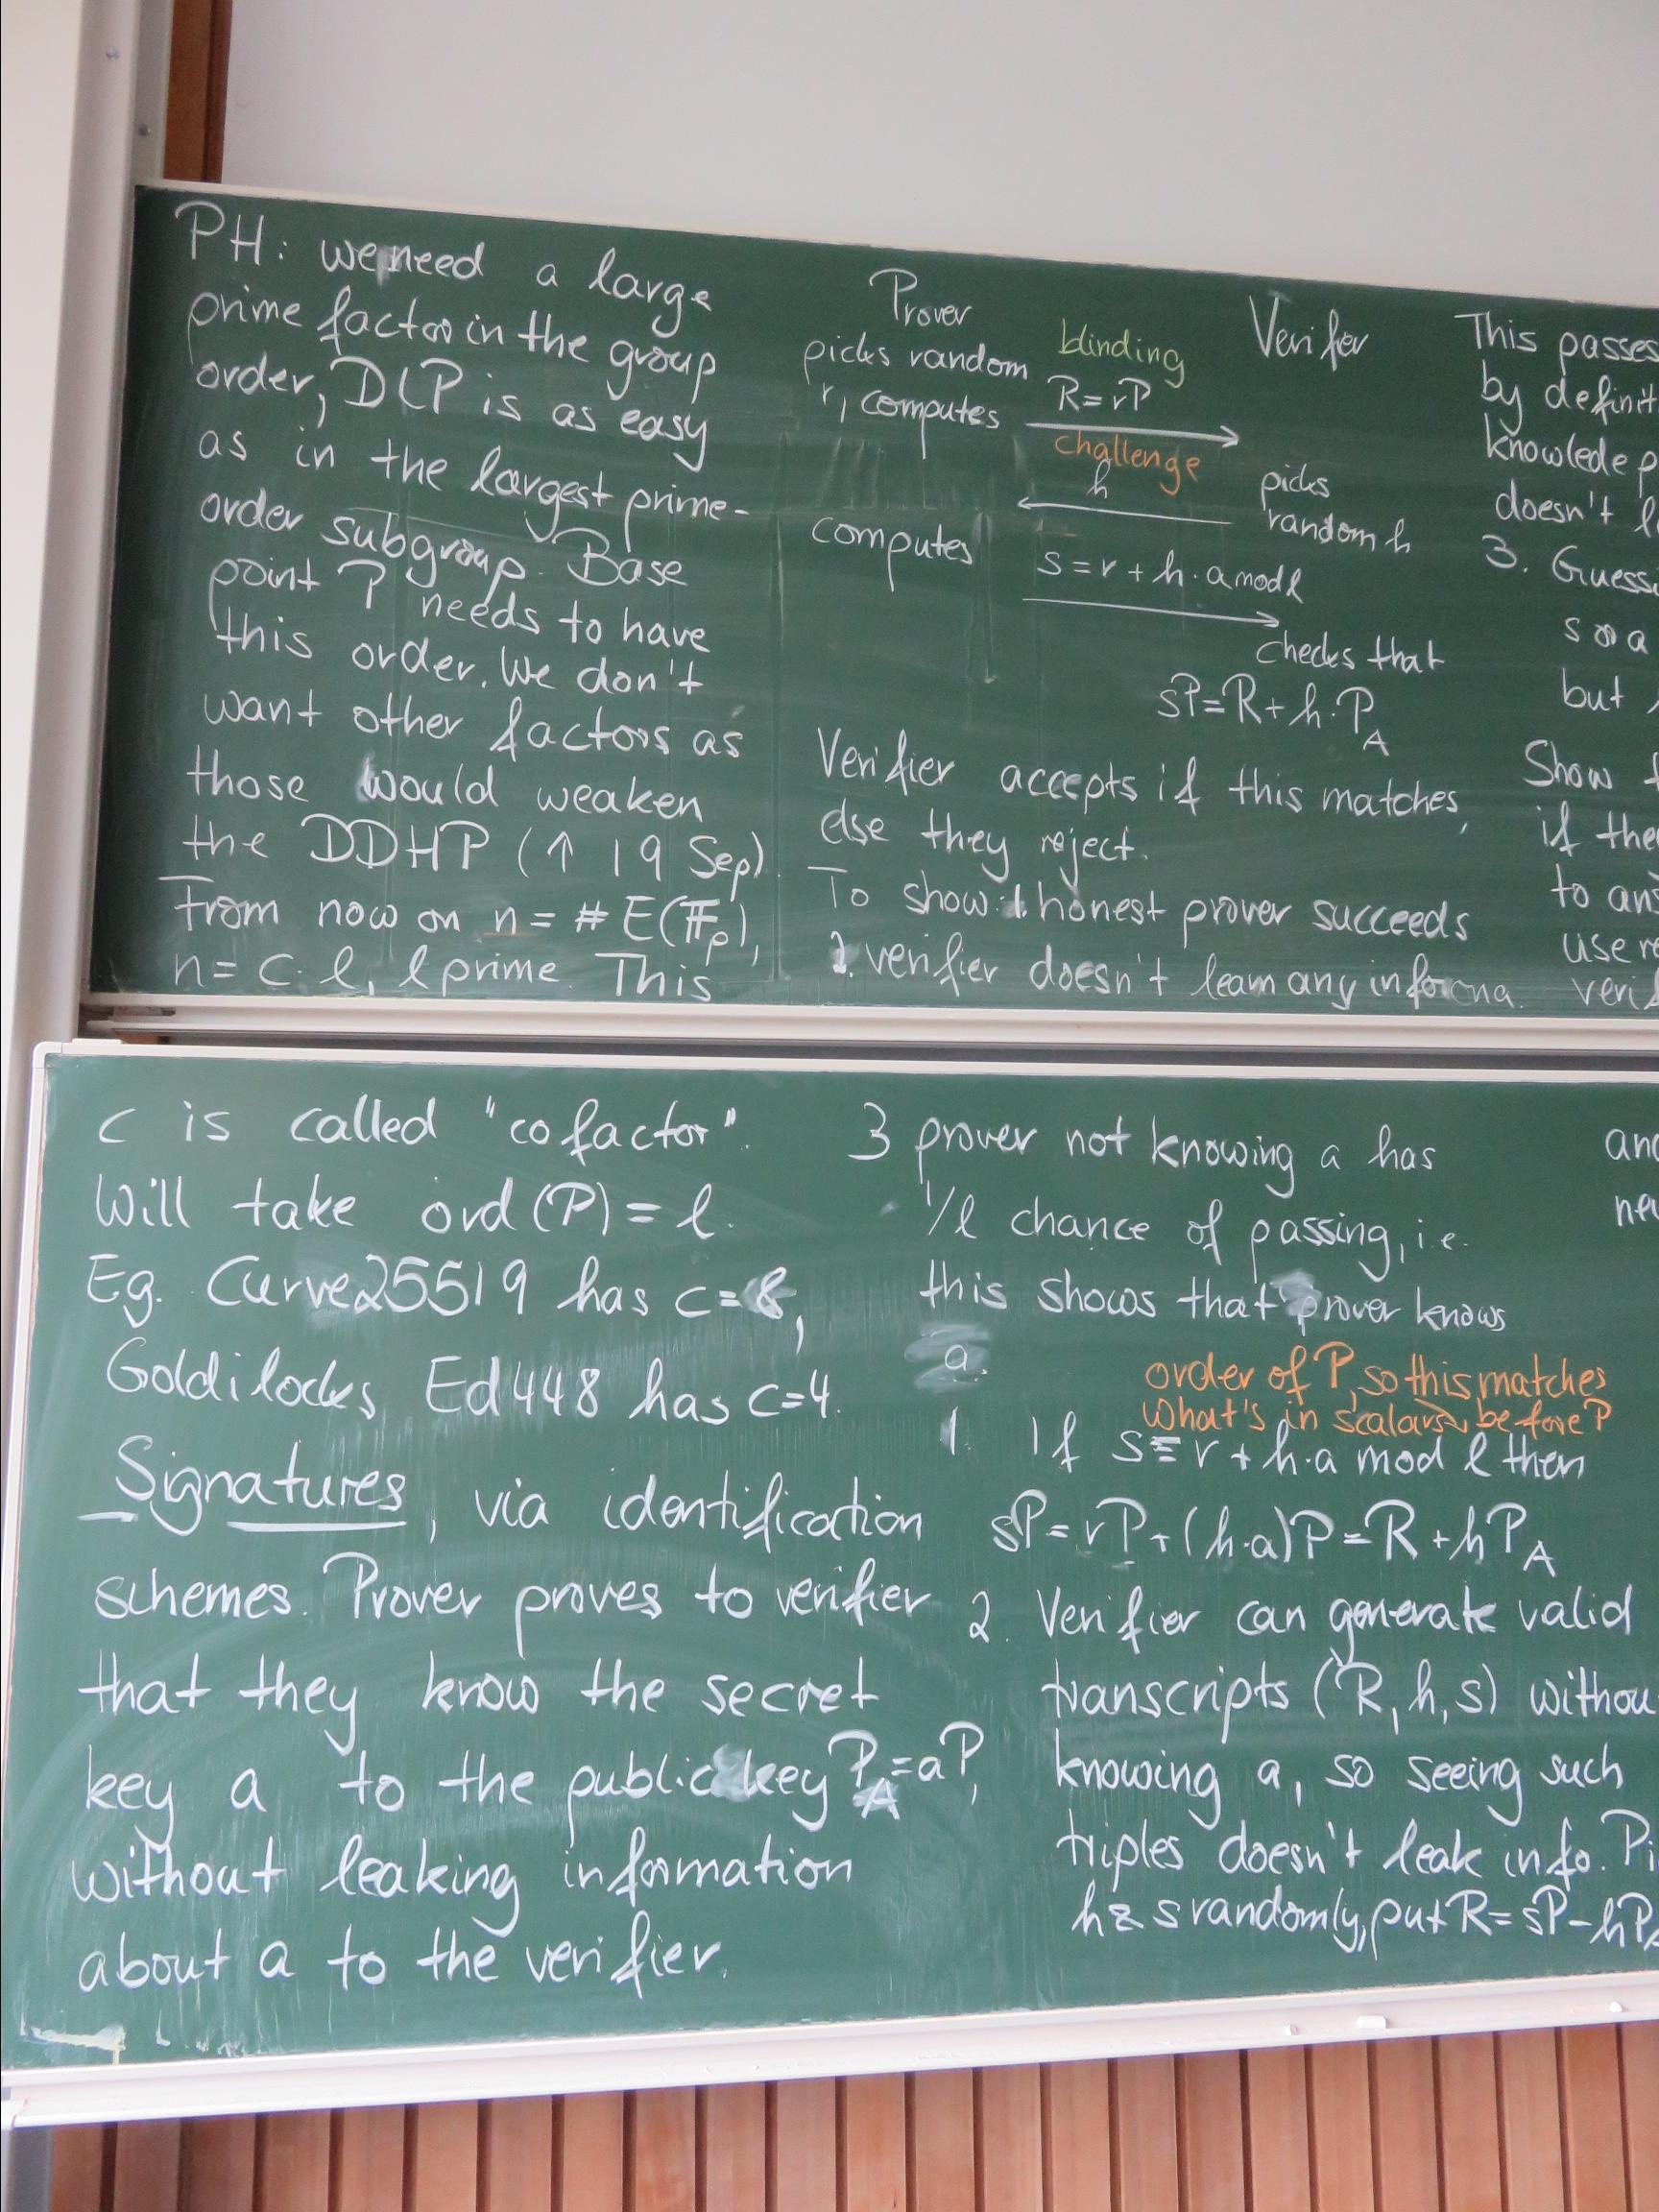 PH: we need a large
prime factor in the group
order, DLP is as easy
as in the largest prime-
order subgroup. Base
point P needs to have
this order. We don't
want other factors as
those would weaken
the DDHP (↑ 19 Sep)
From now on n = # E(𝔽_p),
n = c·l, l prime. This
c is called "cofactor".
Will take ord(P) = l.
Eg. Curve25519 has c=8,
Goldilocks Ed448 has c=4.
Signatures, via identification
schemes. Prover proves to verifier
that they know the secret
key a to the public key P_A=aP,
without leaking information
about a to the verifier.
Prover
picks random
r, computes
blinding
R=rP
challenge
h
Verifier
picks
random h
computes
s = r + h·a mod l
checks that
sP=R+h·P_A
Verifier accepts if this matches,
else they reject.
To show: 1. honest prover succeeds
2. verifier doesn't learn any informa.
3 prover not knowing a has
1/l chance of passing, i.e.
this shows that prover knows
a.
order of P, so this matches
what's in scalars before P
1. If s≡r+h·a mod l then
sP=rP+(h·a)P=R+hP_A
2. Verifier can generate valid
transcripts (R,h,s) withou
knowing a, so seeing such
triples doesn't leak info. Pi
h & s randomly, put R=sP-hP_A
This passes
by definit
knowlede p
doesn't l
3. Guessi
s or a
but
Show t
if the
to an
use r
veri
and
new